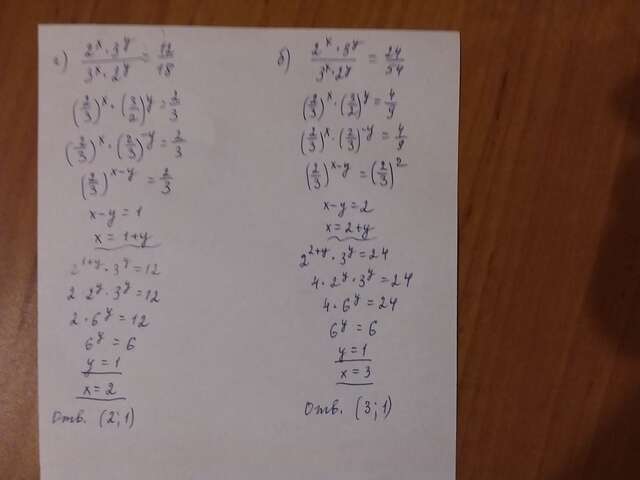 а) (2ˣ · 3ʸ)/(3ˣ · 2ʸ) = 12/18
(2/3)ˣ · (3/2)ʸ = 2/3
(2/3)ˣ · (2/3)⁻ʸ = 2/3
(2/3)ˣ⁻ʸ = 2/3
x-y = 1
x = 1+y
2¹⁺ʸ · 3ʸ = 12
2 · 2ʸ · 3ʸ = 12
2 · 6ʸ = 12
6ʸ = 6
y = 1
x = 2
Отв. (2;1)
б) (2ˣ · 3ʸ)/(3ˣ · 2ʸ) = 24/54
(2/3)ˣ · (3/2)ʸ = 4/9
(2/3)ˣ · (2/3)⁻ʸ = 4/9
(2/3)ˣ⁻ʸ = (2/3)²
x-y = 2
x = 2+y
2²⁺ʸ · 3ʸ = 24
4 · 2ʸ · 3ʸ = 24
4 · 6ʸ = 24
6ʸ = 6
y = 1
x = 3
Отв. (3;1)